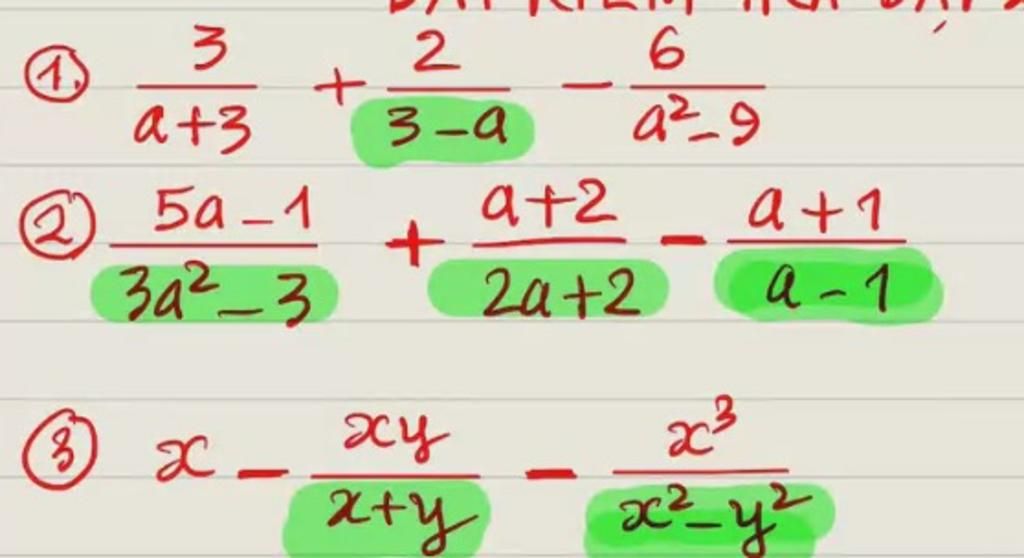 ① 3/(a+3) + 2/(3-a) - 6/(a²-9)
② (5a-1)/(3a²-3) + (a+2)/(2a+2) - (a+1)/(a-1)
③ x - xy/(x+y) - x³/(x²-y²)